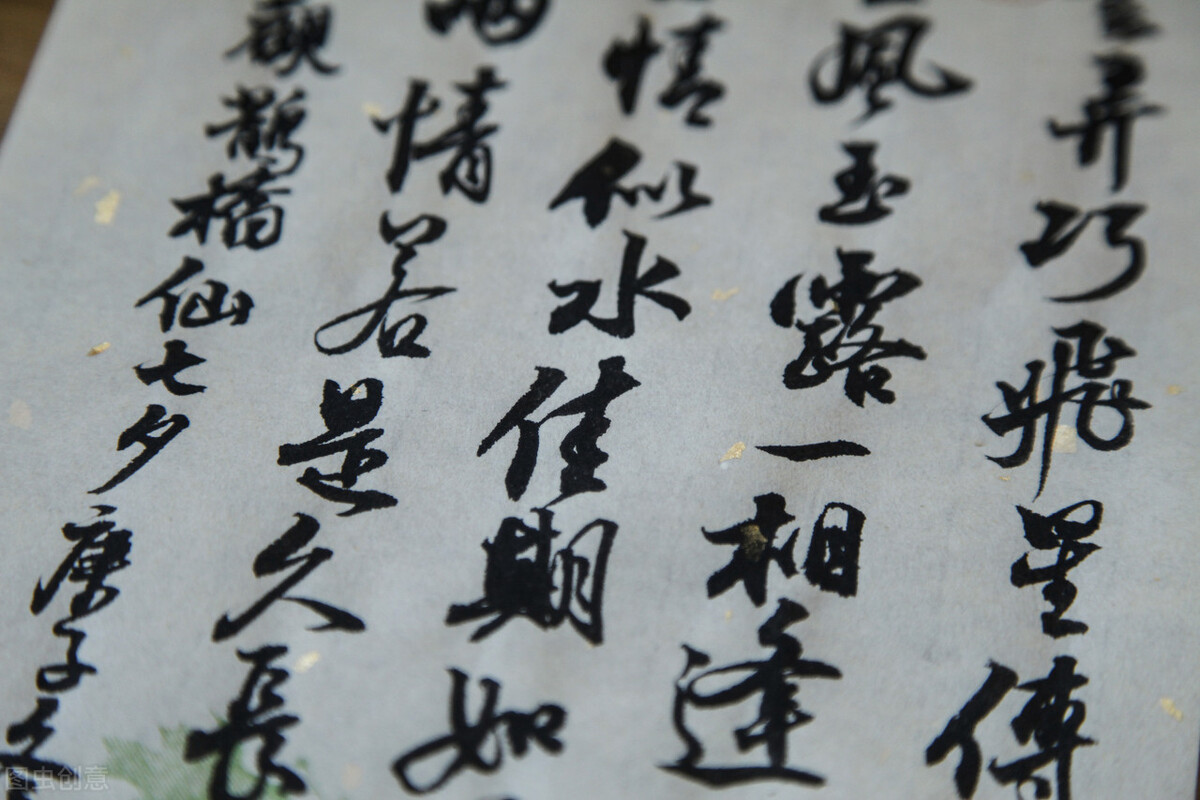 弄巧飛星傳
風玉露一相逢
情似水佳期如
兩情若是久長
觀鵲橋仙七夕庚子
图虫创意